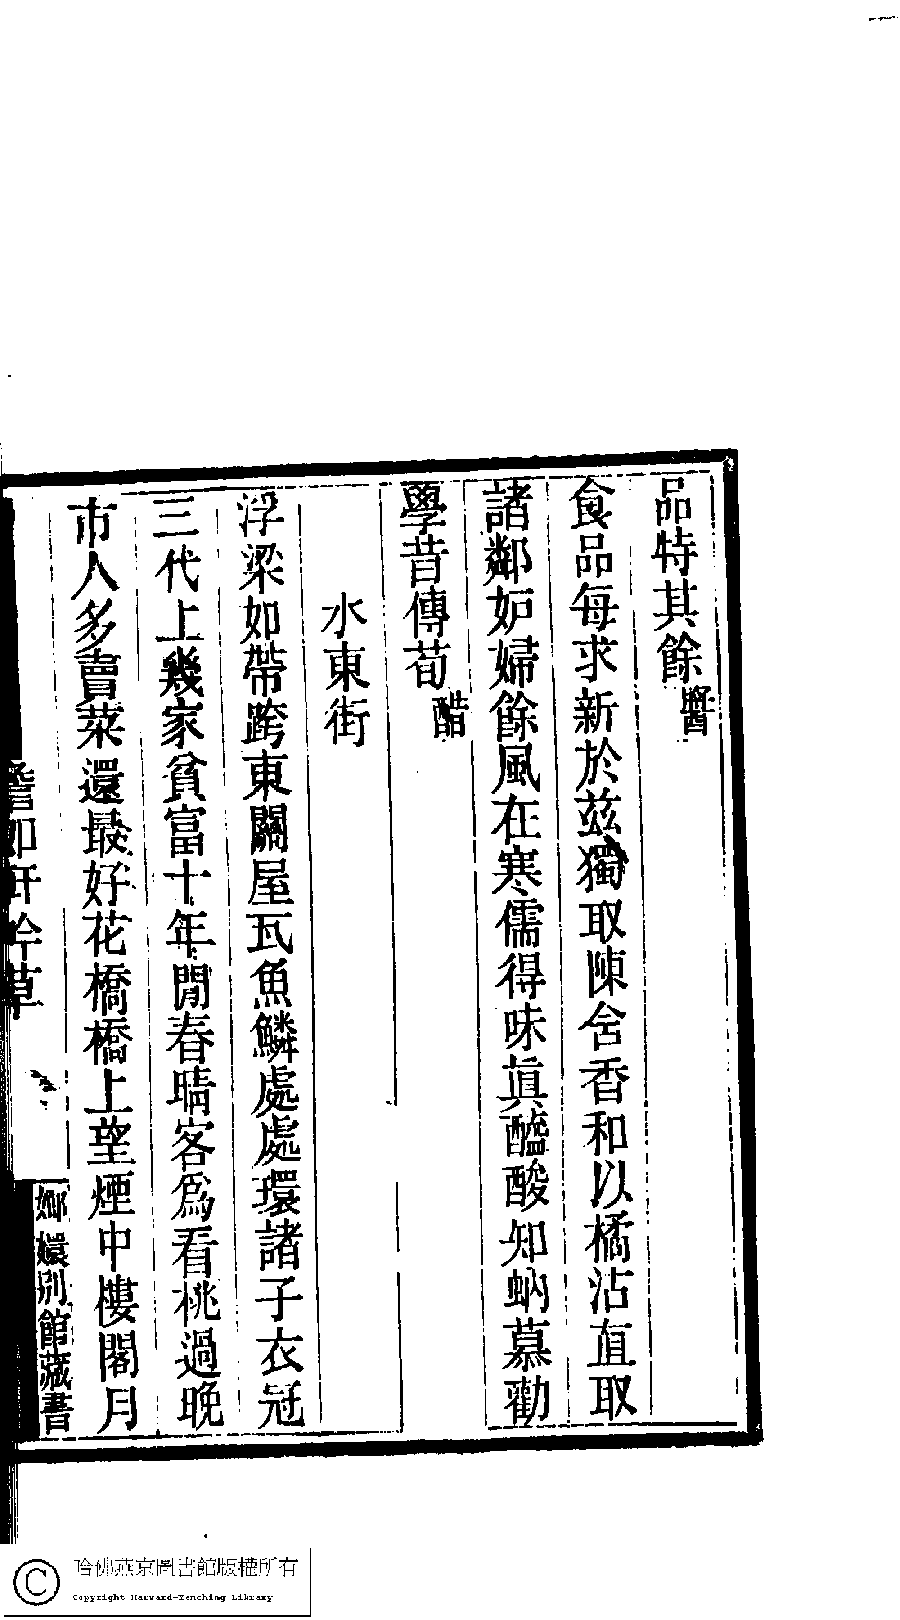 品特其餘醬
食品每求新於茲獨取陳舍香和以橘沽直取
諸鄰妒婦餘風在寒儒得味真醯酸知蚋慕勸
學昔傳荀醋
水東街
浮梁如帶跨東關屋瓦魚鱗處處環諸子衣冠
三代上幾家貧富十年閒春晴客為看桃過晚
市人多賣菜還最好花橋橋上望煙中樓閣月
吟草
嫏嬛別館藏書
哈佛燕京圖書館版權所有
Copyright Harvard-Yenching Library